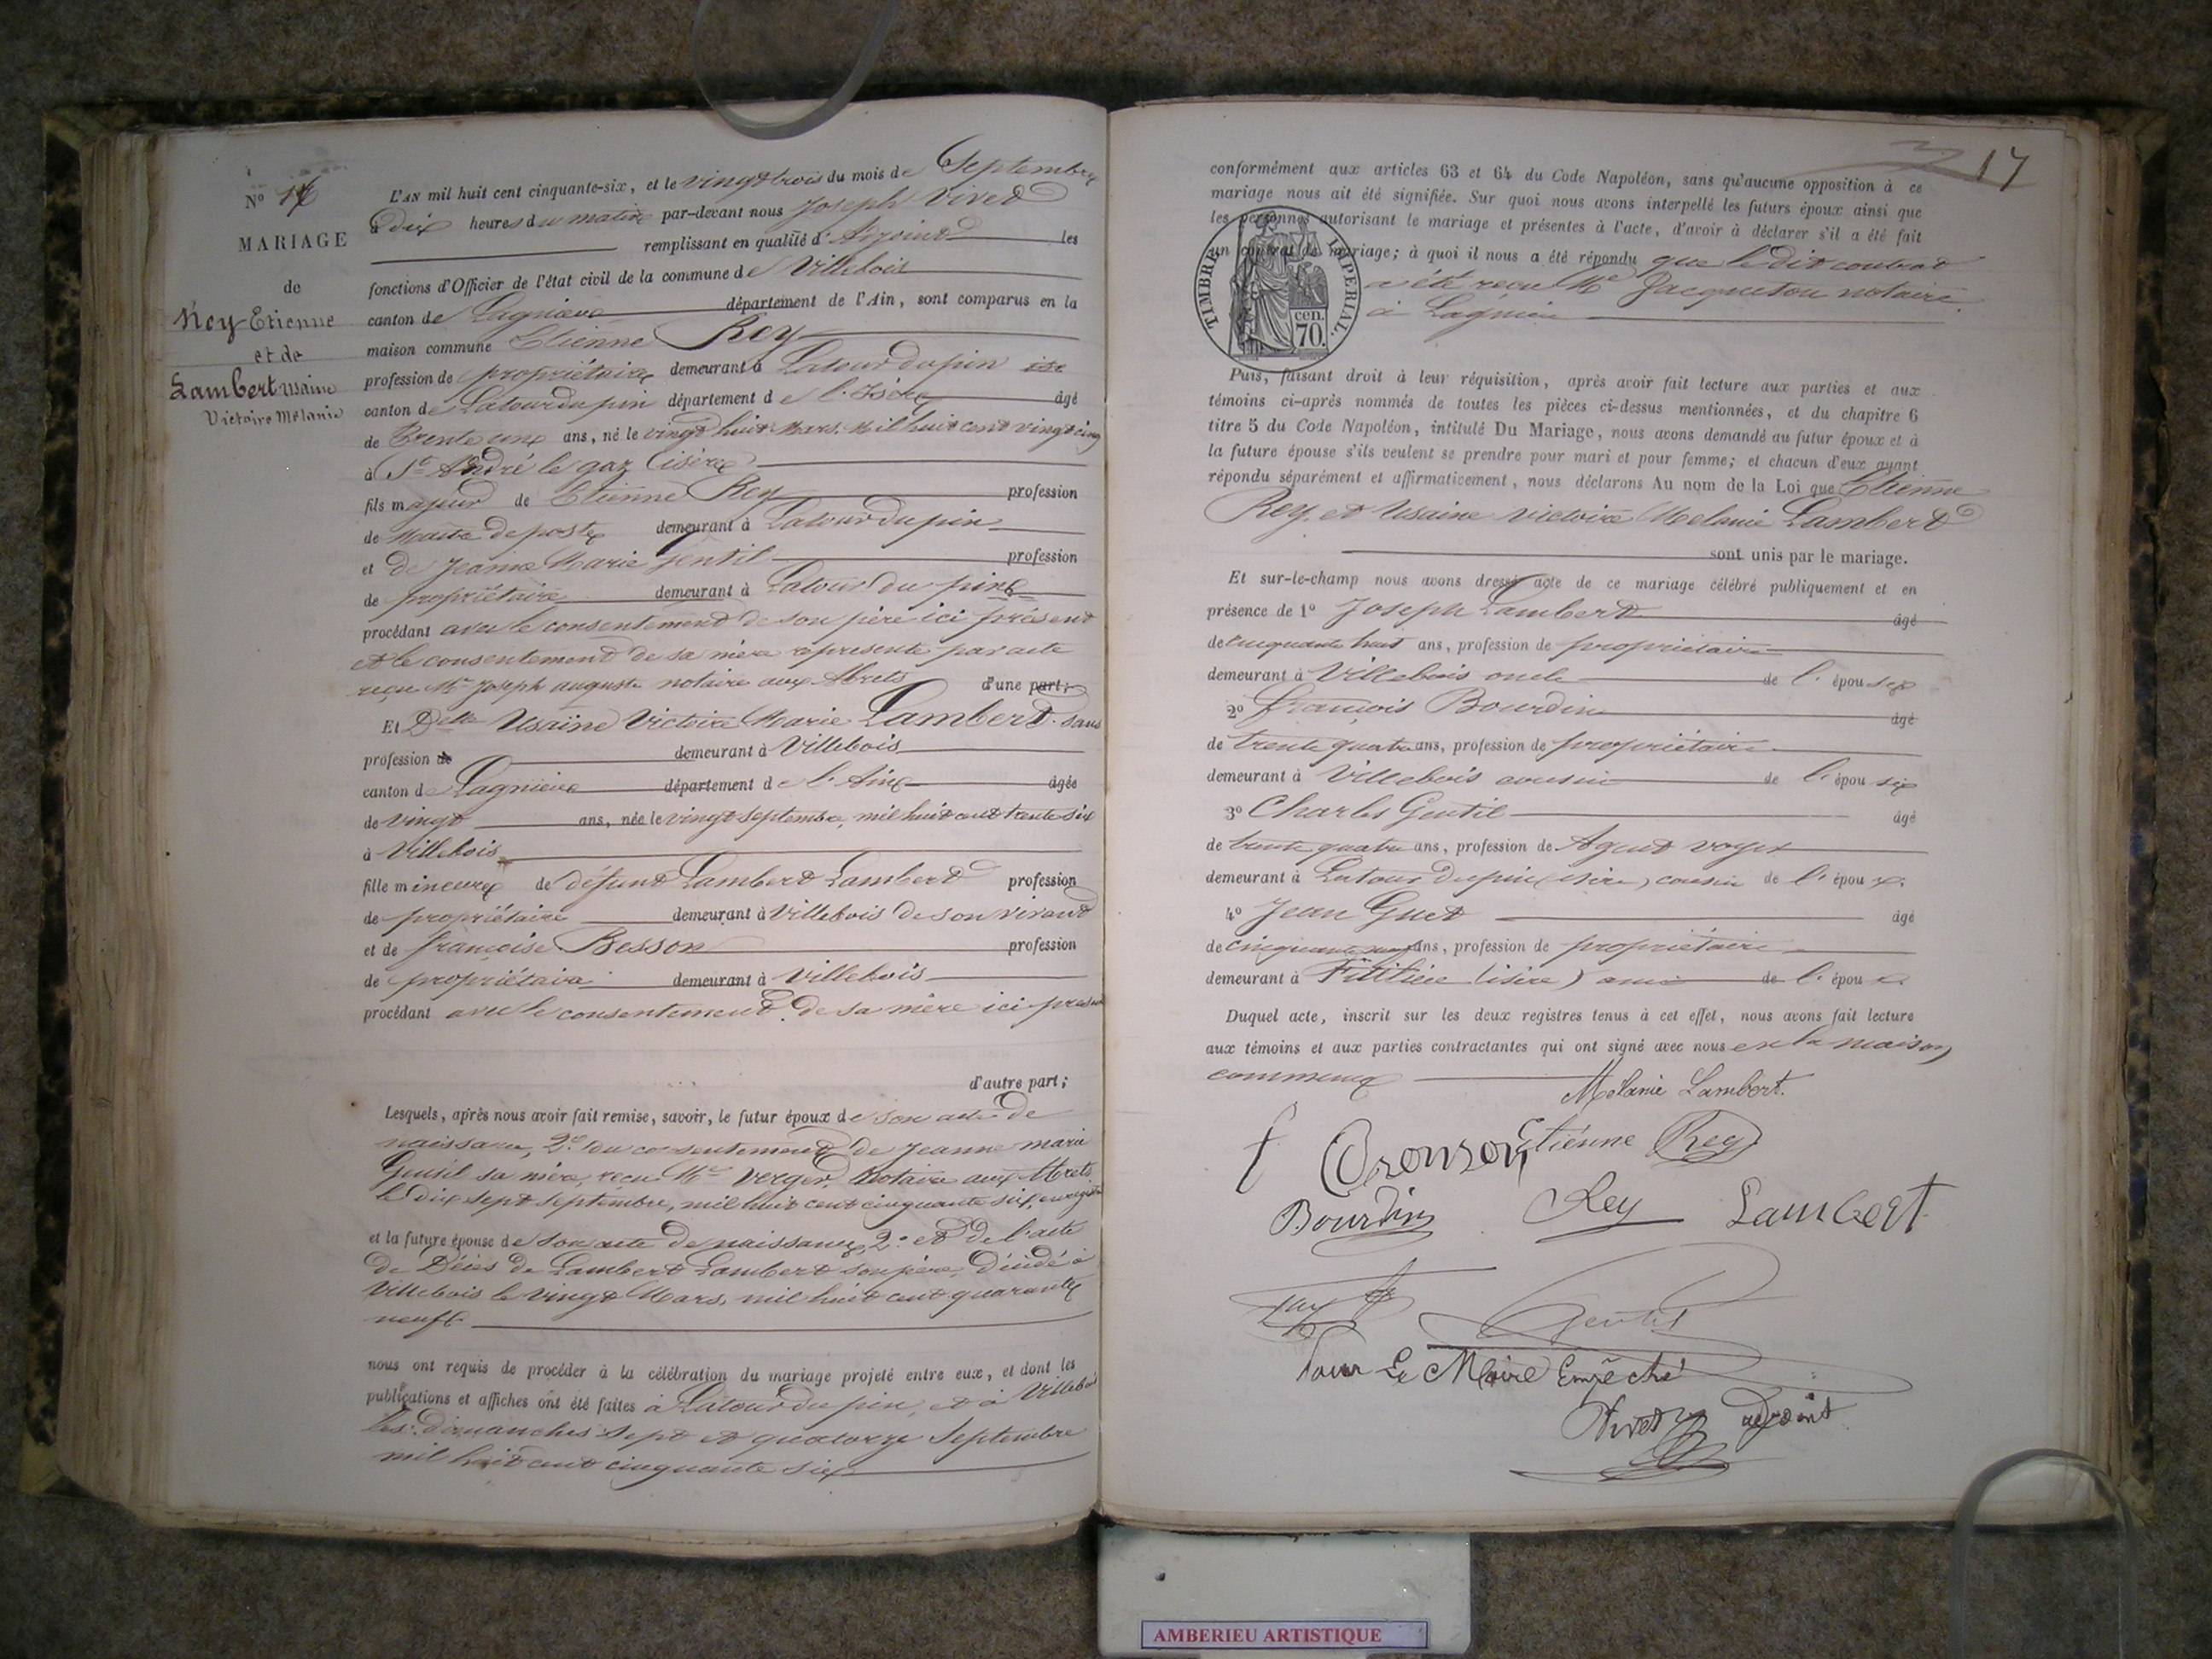 N° 17
MARIAGE
de
Rey Etienne
et de
Lambert Usaine
Victoire Mélanie
L'AN mil huit cent cinquante-six, et le vingt trois du mois de Septembre
à dix heures du matin par-devant nous Joseph Vivet
remplissant en qualité d'Adjoint les
fonctions d'Officier de l'état civil de la commune de Villebois
canton de Lagnieu département de l'Ain, sont comparus en la
maison commune Etienne Rey
profession de propriétaire demeurant à Latour dupin
canton de Latourdupin département de l'Isère âgé
de Trente un ans, né le vingt huit Mars, Mil huit cent vingt cinq
à St André le gaz (isère)
fils majeur de Etienne Rey profession
de Maître de poste demeurant à Latour du pin
et de Jeanne Marie Gentil profession
de propriétaire demeurant à Latour du pin
procédant avec le consentement de son père ici présent
et le consentement de sa mère représenté par acte
reçu Me Joseph auguste notaire aux Abrets d'une part;
Et Delle Usaïne Victoire Marie Lambert sans
profession de demeurant à Villebois
canton de Lagnieu département de l'Ain âgée
de vingt ans, née le vingt septembre, mil huit cent trente six
à Villebois
fille mineure de défunt Lambert Lambert profession
de propriétaire demeurant à Villebois de son vivant
et de françoise Besson profession
de propriétaire demeurant à Villebois
procédant avec le consentement de sa mère ici présen
d'autre part;
Lesquels, après nous avoir fait remise, savoir, le futur époux de son acte de
naissance, 2° du consentement de Jeanne marie
Gentil sa mère, reçu Me Verger, Notaire aux Abrets
le dix sept septembre, mil huit cent cinquante six, enregistré
et la future épouse de son acte de naissance, 2° et de l'acte
de Décès de Lambert Lambert son père, décédé à
Villebois le vingt Mars, mil huit cent quarante
neuf
nous ont requis de procéder à la célébration du mariage projeté entre eux, et dont les
publications et affiches ont été faites à Latour du pin, et à Villebois
les dimanches sept et quatorze Septembre
mil huit cent cinquante six
17
conformément aux articles 63 et 64 du Code Napoléon, sans qu'aucune opposition à ce
mariage nous ait été signifiée. Sur quoi nous avons interpellé les futurs époux ainsi que
les personnes autorisant le mariage et présentes à l'acte, d'avoir à déclarer s'il a été fait
un contrat de mariage; à quoi il nous a été répondu que le dit contrat
a été reçu Me Jacqueton notaire
à Lagnieu
TIMBRE IMPERIAL.
70. cen.
Puis, faisant droit à leur réquisition, après avoir fait lecture aux parties et aux
témoins ci-après nommés de toutes les pièces ci-dessus mentionnées, et du chapitre 6
titre 5 du Code Napoléon, intitulé Du Mariage, nous avons demandé au futur époux et à
la future épouse s'ils veulent se prendre pour mari et pour femme; et chacun d'eux ayant
répondu séparément et affirmativement, nous déclarons Au nom de la Loi que Etienne
Rey et Usaine Victoire Melanie Lambert
sont unis par le mariage.
Et sur-le-champ nous avons dressé acte de ce mariage célébré publiquement et en
présence de 1° Joseph Lambert âgé
de cinquante huit ans, profession de propriétaire
demeurant à Villebois oncle de l'épouse
2° François Bourdin âgé
de trente quatre ans, profession de propriétaire
demeurant à Villebois cousin de l'épouse
3° Charles Gentil âgé
de trente quatre ans, profession de Agent voyer
demeurant à Latour Dupin (isère) cousin de l'époux
4° Jean Guet âgé
de cinquante neuf ans, profession de propriétaire
demeurant à Fitilieu (isère) ami de l'époux
Duquel acte, inscrit sur les deux registres tenus à cet effet, nous avons fait lecture
aux témoins et aux parties contractantes qui ont signé avec nous en la maison
commune
Mélanie Lambert.
f Etienne Rey
Bourdin Rey Lambert
Gentil
Pour Le Maire Empêché
Vivet adjoint
AMBERIEU ARTISTIQUE